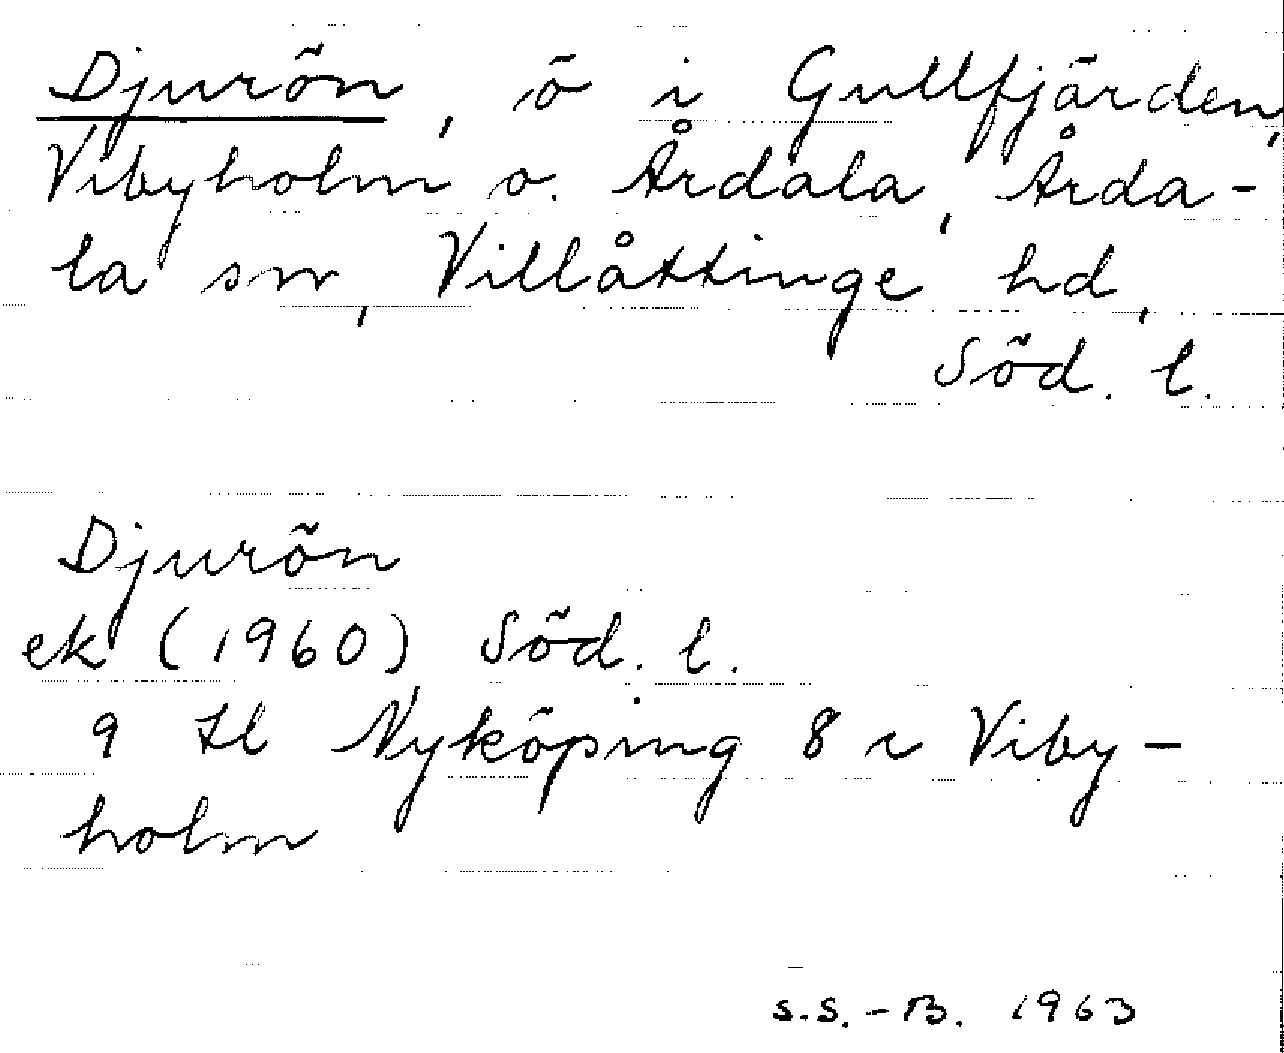 Djurön, ö i Gullfjärden,
Vibyholm o. Årdala, Årda-
la sn, Villåttinge hd,
Söd. l.
Djurön
ek (1960) Söd. l.
9 Il Nyköping 8 i Viby-
holm
S.S.-B. 1963